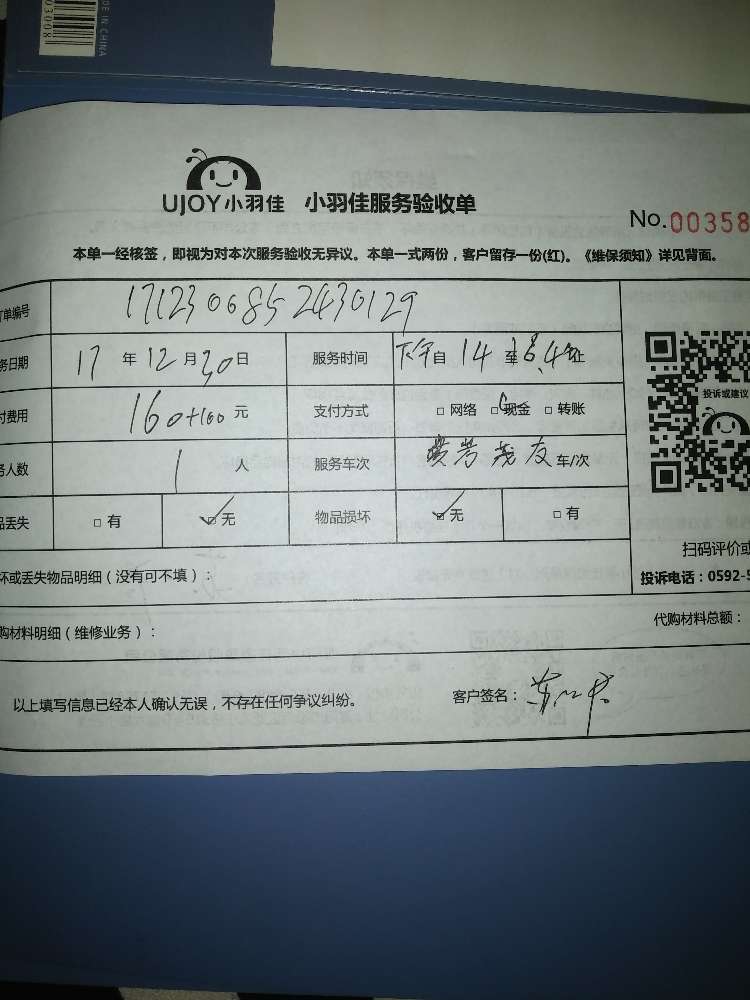 03008
DE IN CHINA
UJOY小羽佳 小羽佳服务验收单
No.00358
本单一经核签，即视为对本次服务验收无异议。本单一式两份，客户留存一份(红)。《维保须知》详见背面。
订单编号 17123006852430129
务日期 17 年 12 月 30 日 服务时间 下午自 14 至 止
付费用 160+100 元 支付方式 □ 网络 □ 现金 □ 转账
务人数 1 人 服务车次 车/次
投诉或建议
品丢失 □ 有 □ 无 物品损坏 □ 无 □ 有
扫码评价或
坏或丢失物品明细（没有可不填）：
投诉电话：0592-5
购材料明细（维修业务）：
代购材料总额：
以上填写信息已经本人确认无误，不存在任何争议纠纷。 客户签名：